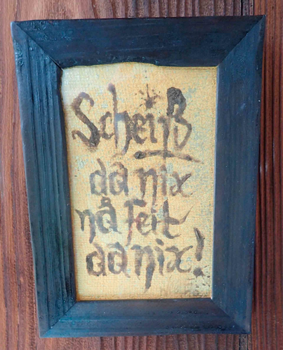 Scheiß
da nix
nå feit
da nix!